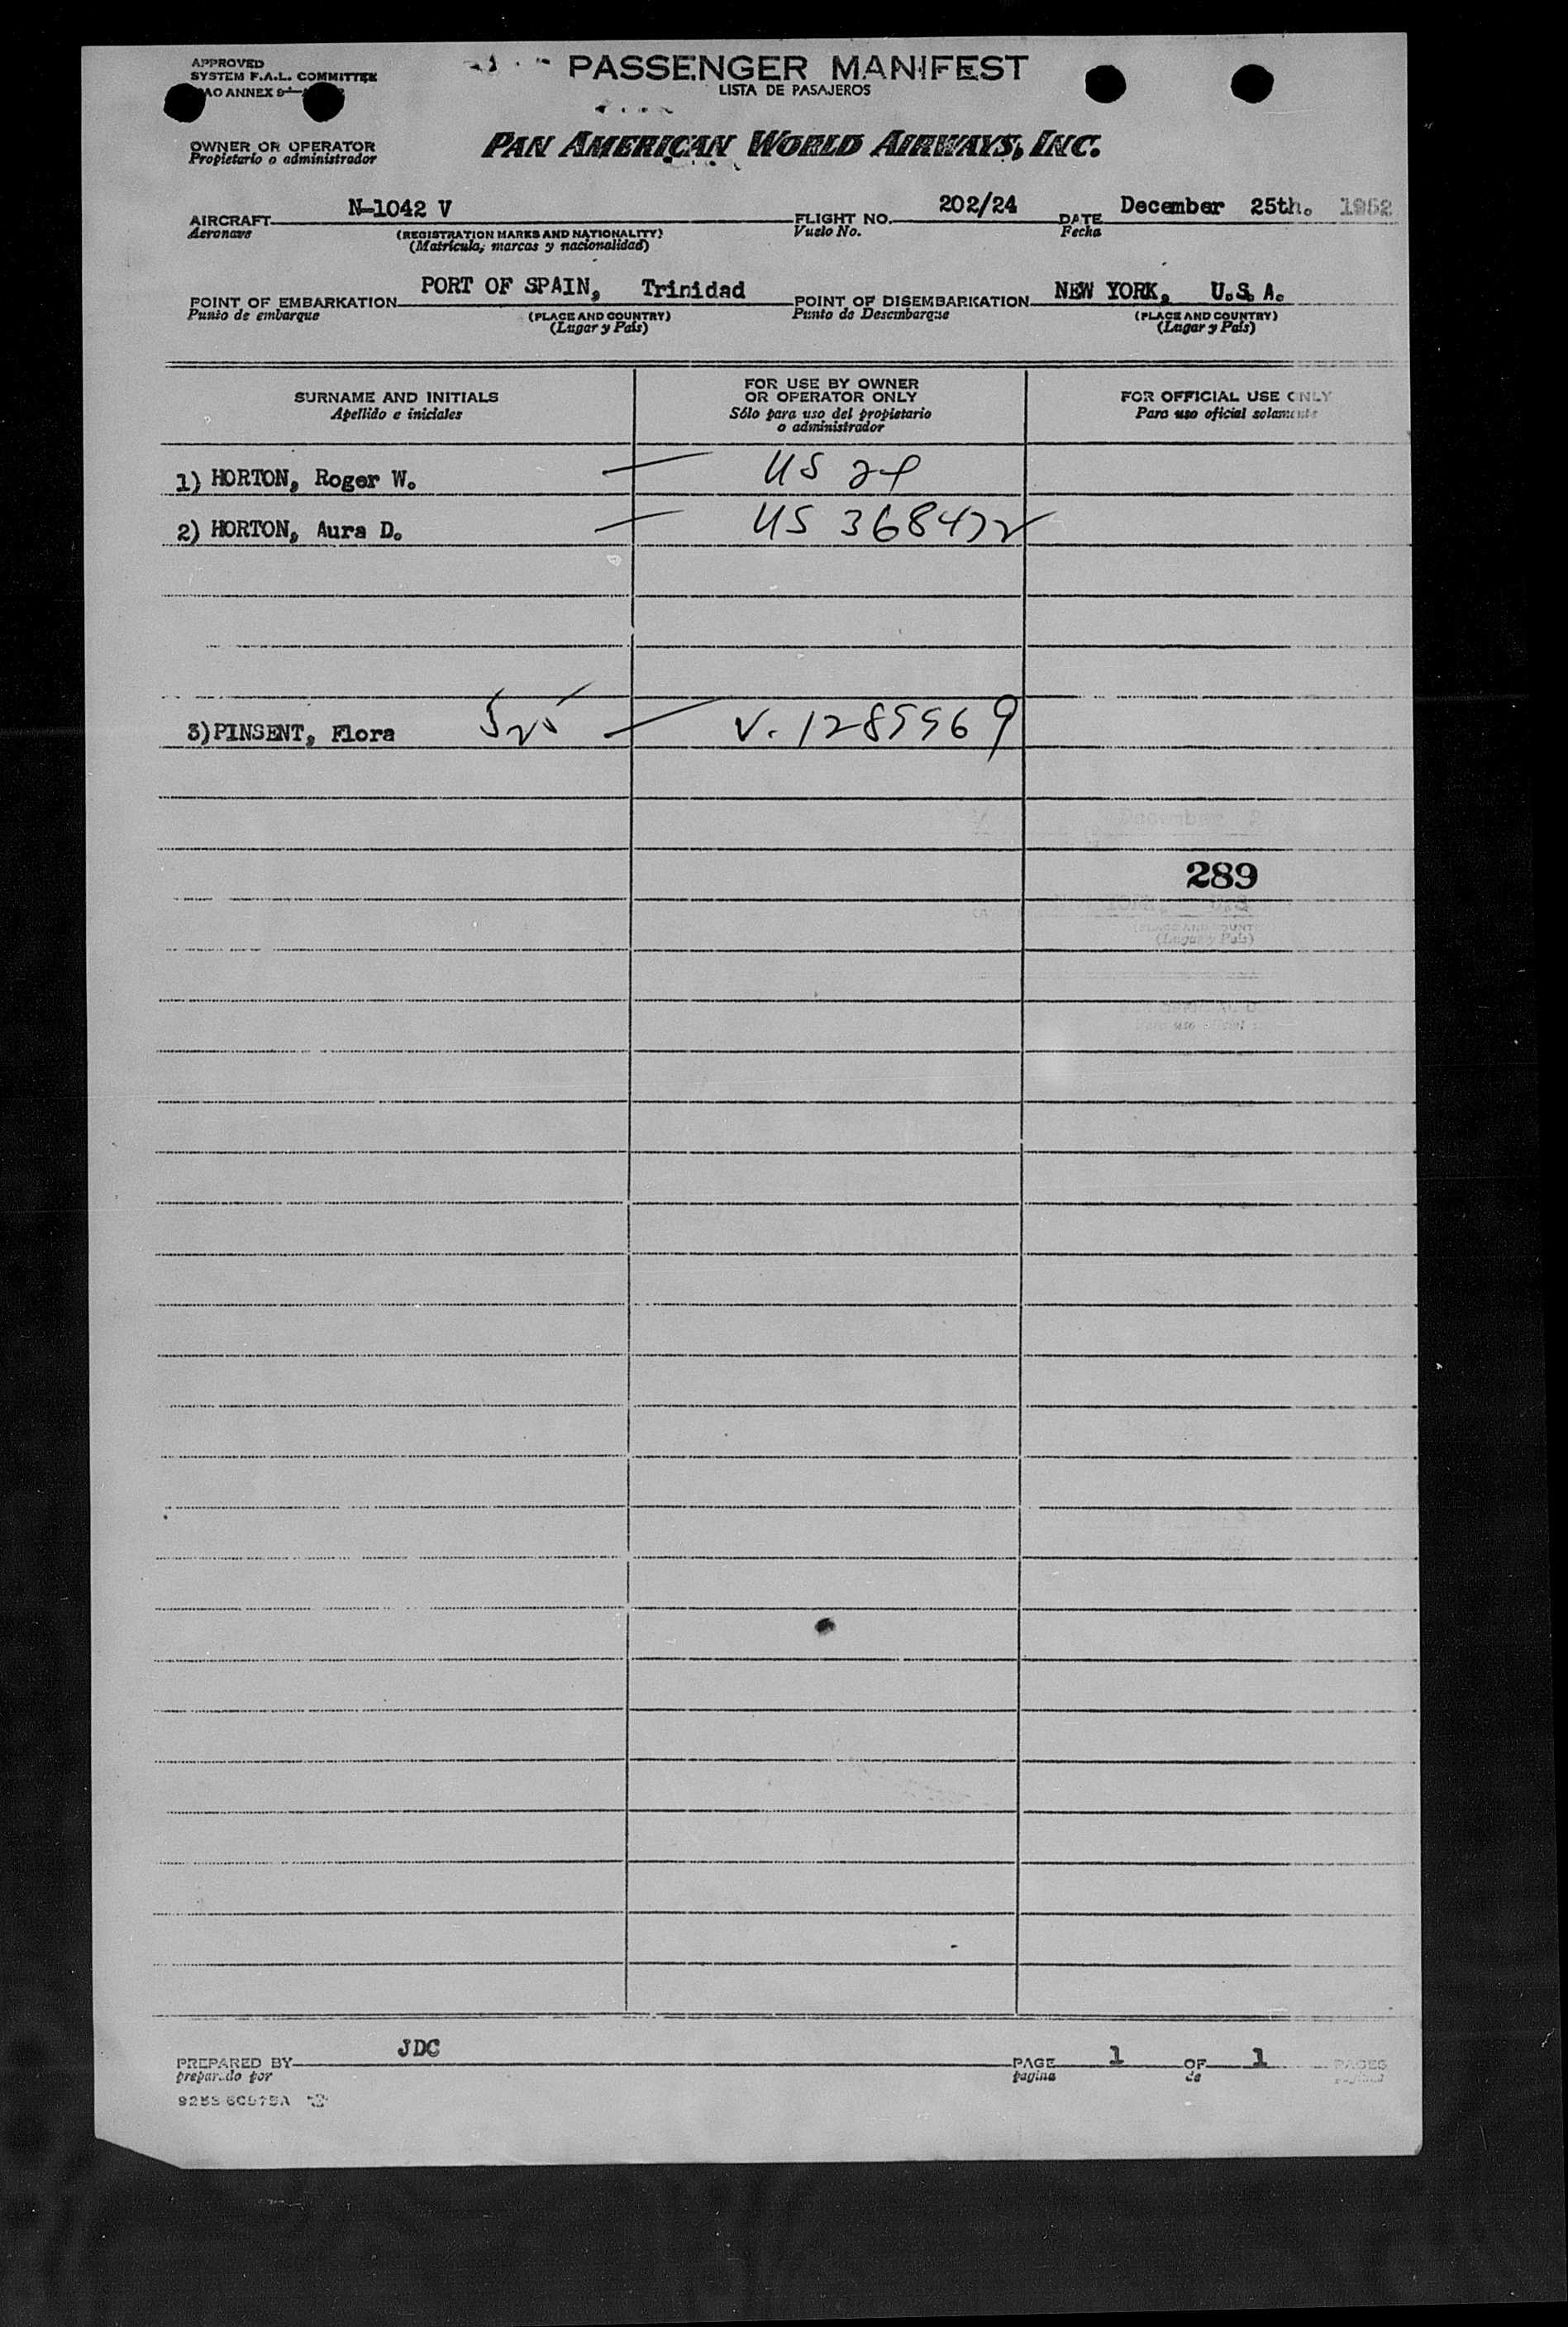 APPROVED
SYSTEM F.A.L. COMMITTEE
AO ANNEX 9
PASSENGER MANIFEST
LISTA DE PASAJEROS
OWNER OR OPERATOR
Propietario o administrador
PAN AMERICAN WORLD AIRWAYS, INC.
AIRCRAFT N-1042 V FLIGHT NO. 202/24 DATE December 25th. 1952
Aeronave (REGISTRATION MARKS AND NATIONALITY) Vuelo No. Fecha
(Matrícula, marcas y nacionalidad)
POINT OF EMBARKATION PORT OF SPAIN, Trinidad POINT OF DISEMBARKATION NEW YORK, U.S.A.
Punto de embarque (PLACE AND COUNTRY) Punto de Desembarque (PLACE AND COUNTRY)
(Lugar y País) (Lugar y País)
SURNAME AND INITIALS
Apellido e iniciales
FOR USE BY OWNER
OR OPERATOR ONLY
Sólo para uso del propietario
o administrador
FOR OFFICIAL USE ONLY
Para uso oficial solamente
1) HORTON, Roger W. US
2) HORTON, Aura D. US 368472
3) PINSENT, Flora V. 1285569
289
PREPARED BY JDC PAGE 1 OF 1 PAGES
preparado por pagina de